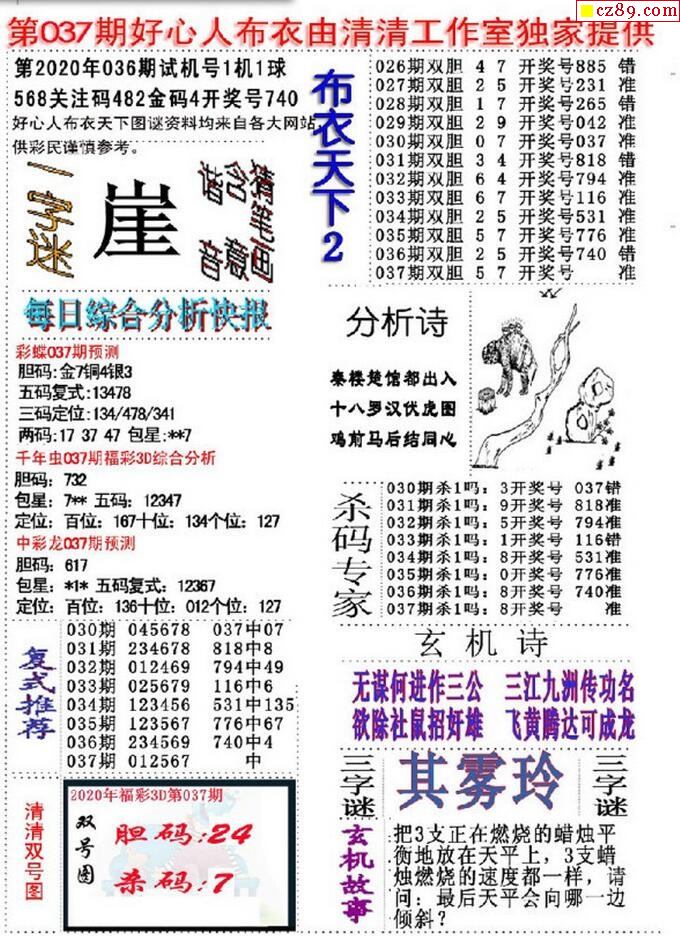 cz89.com
第037期好心人布衣由清清工作室独家提供
第2020年036期试机号1机1球
568关注码482金码4开奖号740
好心人布衣天下图谜资料均来自各大网站,
供彩民谨慎参考。
一字迷
崖
猜笔画
含意
谐音
布衣天下2
026期双胆 4 7 开奖号885 错
027期双胆 2 5 开奖号231 准
028期双胆 1 7 开奖号265 错
029期双胆 2 9 开奖号042 准
030期双胆 0 7 开奖号037 准
031期双胆 3 4 开奖号818 错
032期双胆 6 4 开奖号794 准
033期双胆 6 7 开奖号116 准
034期双胆 2 5 开奖号531 准
035期双胆 5 7 开奖号776 准
036期双胆 2 5 开奖号740 错
037期双胆 5 7 开奖号 准
每日综合分析快报
彩蝶037期预测
胆码:金7铜4银3
五码复式:13478
三码定位:134/478/341
两码:17 37 47 包星:**7
千年虫037期福彩3D综合分析
胆码: 732
包星: 7** 五码: 12347
定位: 百位: 167十位: 134个位: 127
中彩龙037期预测
胆码: 617
包星: *1* 五码复式: 12367
定位: 百位: 136十位: 012个位: 127
分析诗
秦楼楚馆都出入
十八罗汉伏虎图
鸡前马后结同心
杀码专家
030期杀1吗: 3开奖号 037错
031期杀1吗: 9开奖号 818准
032期杀1吗: 5开奖号 794准
033期杀1吗: 1开奖号 116错
034期杀1吗: 8开奖号 531准
035期杀1吗: 0开奖号 776准
036期杀1吗: 8开奖号 740准
037期杀1吗: 8开奖号 准
复式推荐
030期 045678 037中07
031期 234678 818中8
032期 012469 794中49
033期 025679 116中6
034期 123456 531中135
035期 123567 776中67
036期 234569 740中4
037期 012567 中
玄机诗
无谋何进作三公 三江九洲传功名
欲除社鼠招奸雄 飞黄腾达可成龙
三字谜
其雾玲
三字谜
清清双号图
2020年福彩3D第037期
双号图
胆码:24
杀码:7
玄机故事
把3支正在燃烧的蜡烛平
衡地放在天平上，3支蜡
烛燃烧的速度都一样，请
问：最后天平会向哪一边
倾斜？